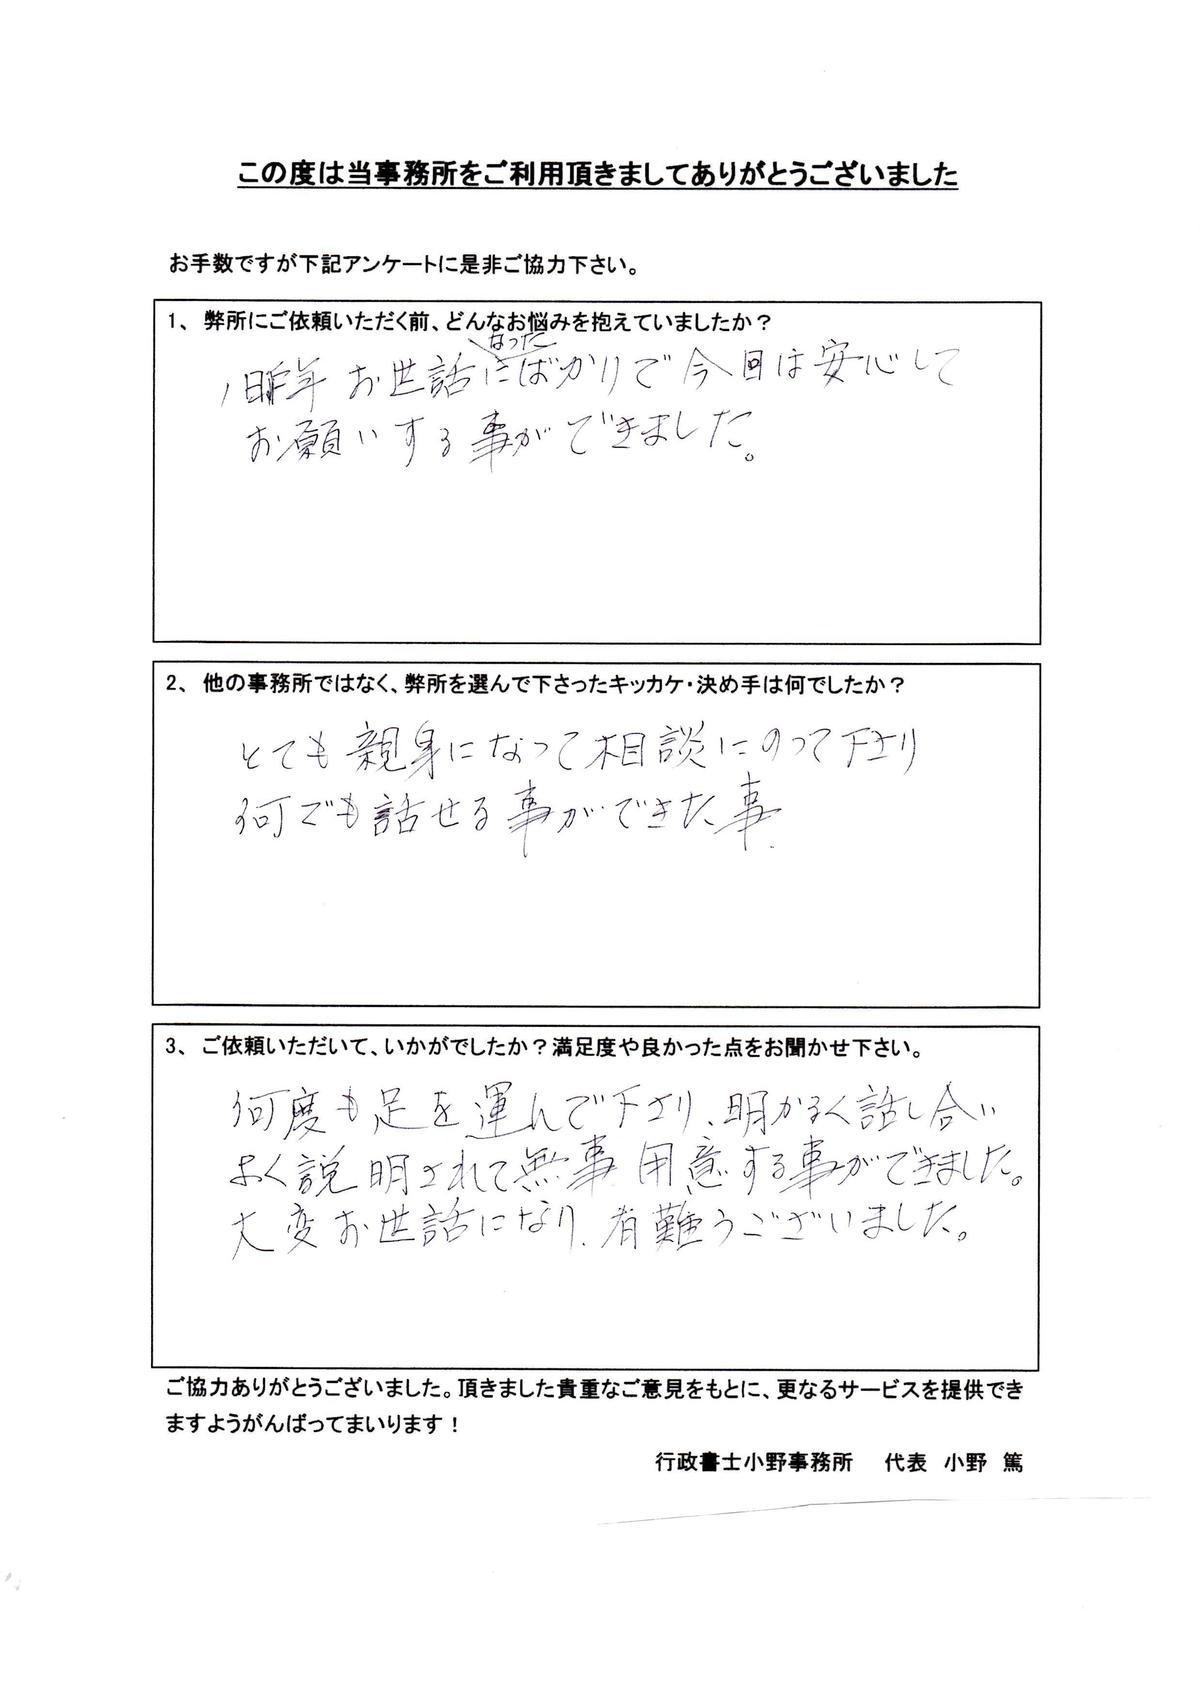 この度は当事務所をご利用頂きましてありがとうございました
お手数ですが下記アンケートに是非ご協力下さい。
1、 弊所にご依頼いただく前、どんなお悩みを抱えていましたか？
昨年 お世話になったばかりで今回は安心して
お願いする事ができました。
2、 他の事務所ではなく、弊所を選んで下さったキッカケ・決め手は何でしたか？
とても親身になって相談にのって下さり
何でも話せる事ができた事
3、 ご依頼いただいて、いかがでしたか？満足度や良かった点をお聞かせ下さい。
何度も足を運んで下さり、明かるく話し合い
よく説明されて無事用意する事ができました。
大変お世話になり、有難うございました。
ご協力ありがとうございました。頂きました貴重なご意見をもとに、更なるサービスを提供でき
ますようがんばってまいります！
行政書士小野事務所　代表　小野　篤